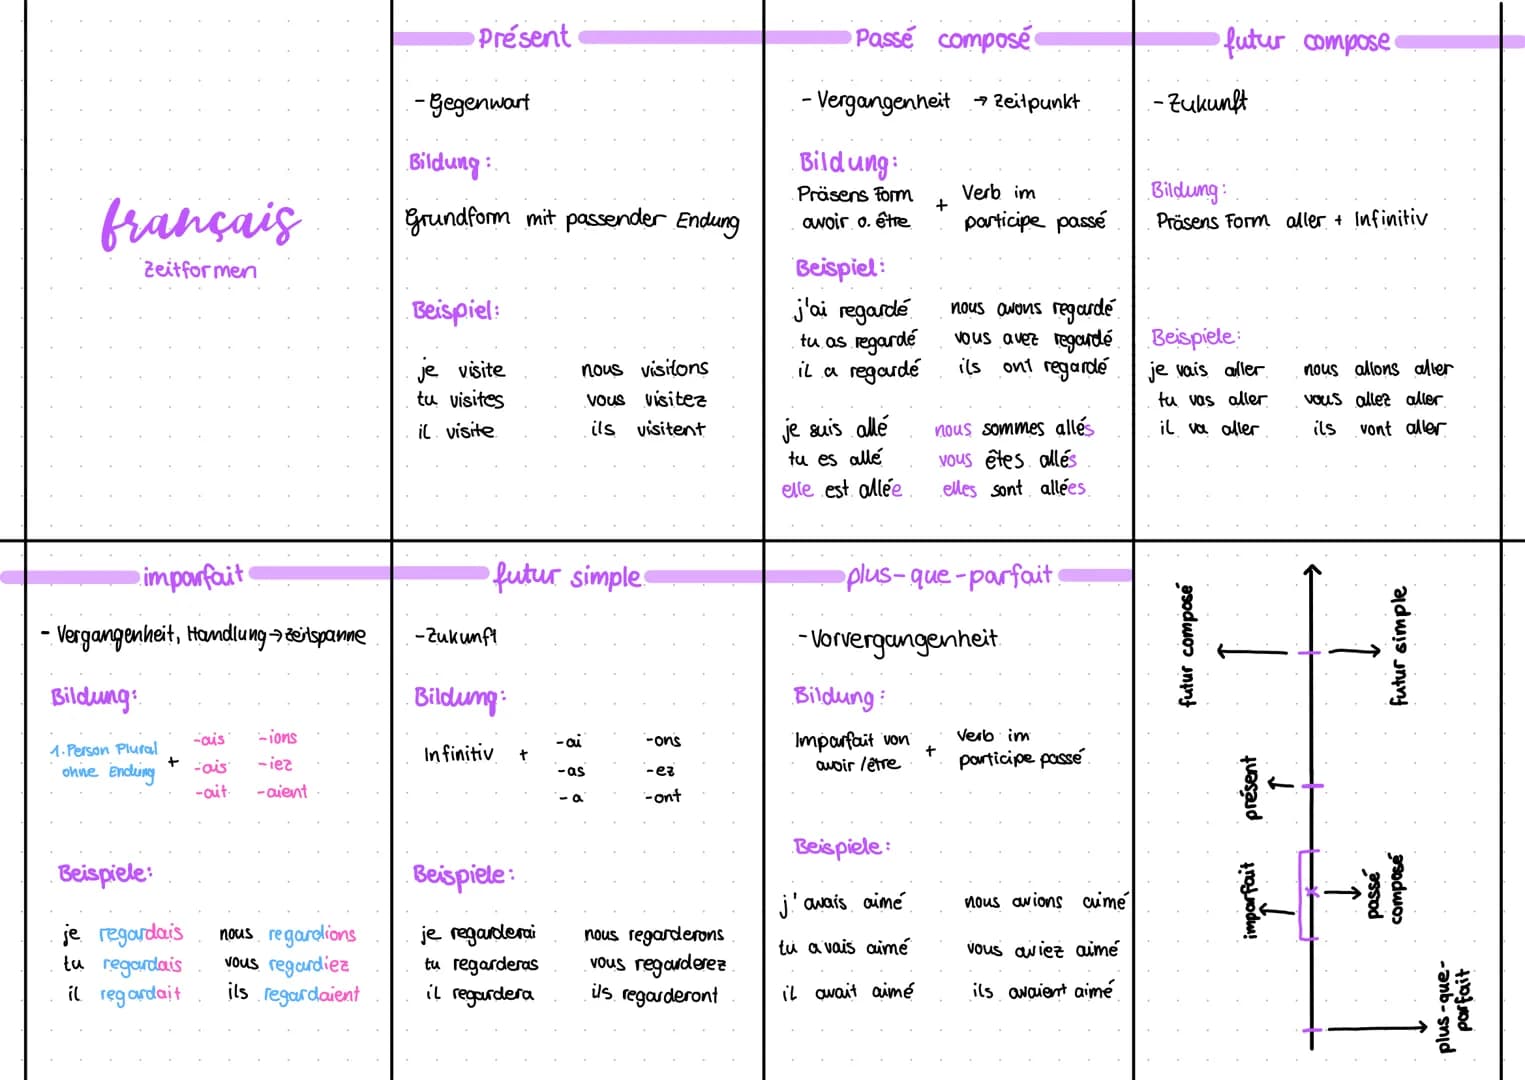 français
Zeitformen
Présent
- Gegenwart
Bildung:
Grundform mit passender Endung
Beispiel:
je visite nous visitons
tu visites vous visitez
il visite ils visitent
Passé composé
- Vergangenheit → Zeitpunkt
Bildung:
Präsens Form + Verb im
avoir o. être participe passé
Beispiel:
j'ai regardé nous avons regardé
tu as regardé vous avez regardé
il a regardé ils ont regardé
je suis allé nous sommes allés
tu es allé vous êtes allés
elle est allée elles sont allées
futur compose
- Zukunft
Bildung:
Präsens Form aller + Infinitiv
Beispiele:
je vais aller nous allons aller
tu vas aller vous allez aller
il va aller ils vont aller
imparfait
- Vergangenheit, Handlung → Zeitspanne
Bildung:
1. Person Plural + -ais -ions
ohne Endung -ais -iez
-ait -aient
Beispiele:
je regardais nous regardions
tu regardais vous regardiez
il regardait ils regardaient
futur simple
- Zukunft
Bildung:
Infinitiv + -ai -ons
-as -ez
-a -ont
Beispiele:
je regarderai nous regarderons
tu regarderas vous regarderez
il regardera ils regarderont
plus-que-parfait
- Vorvergangenheit
Bildung:
Imparfait von + Verb im
avoir / être participe passé
Beispiele:
j'avais aimé nous avions aimé
tu avais aimé vous aviez aimé
il avait aimé ils avaient aimé
futur composé
futur simple
présent
imparfait
passé
composé
plus-que-
parfait